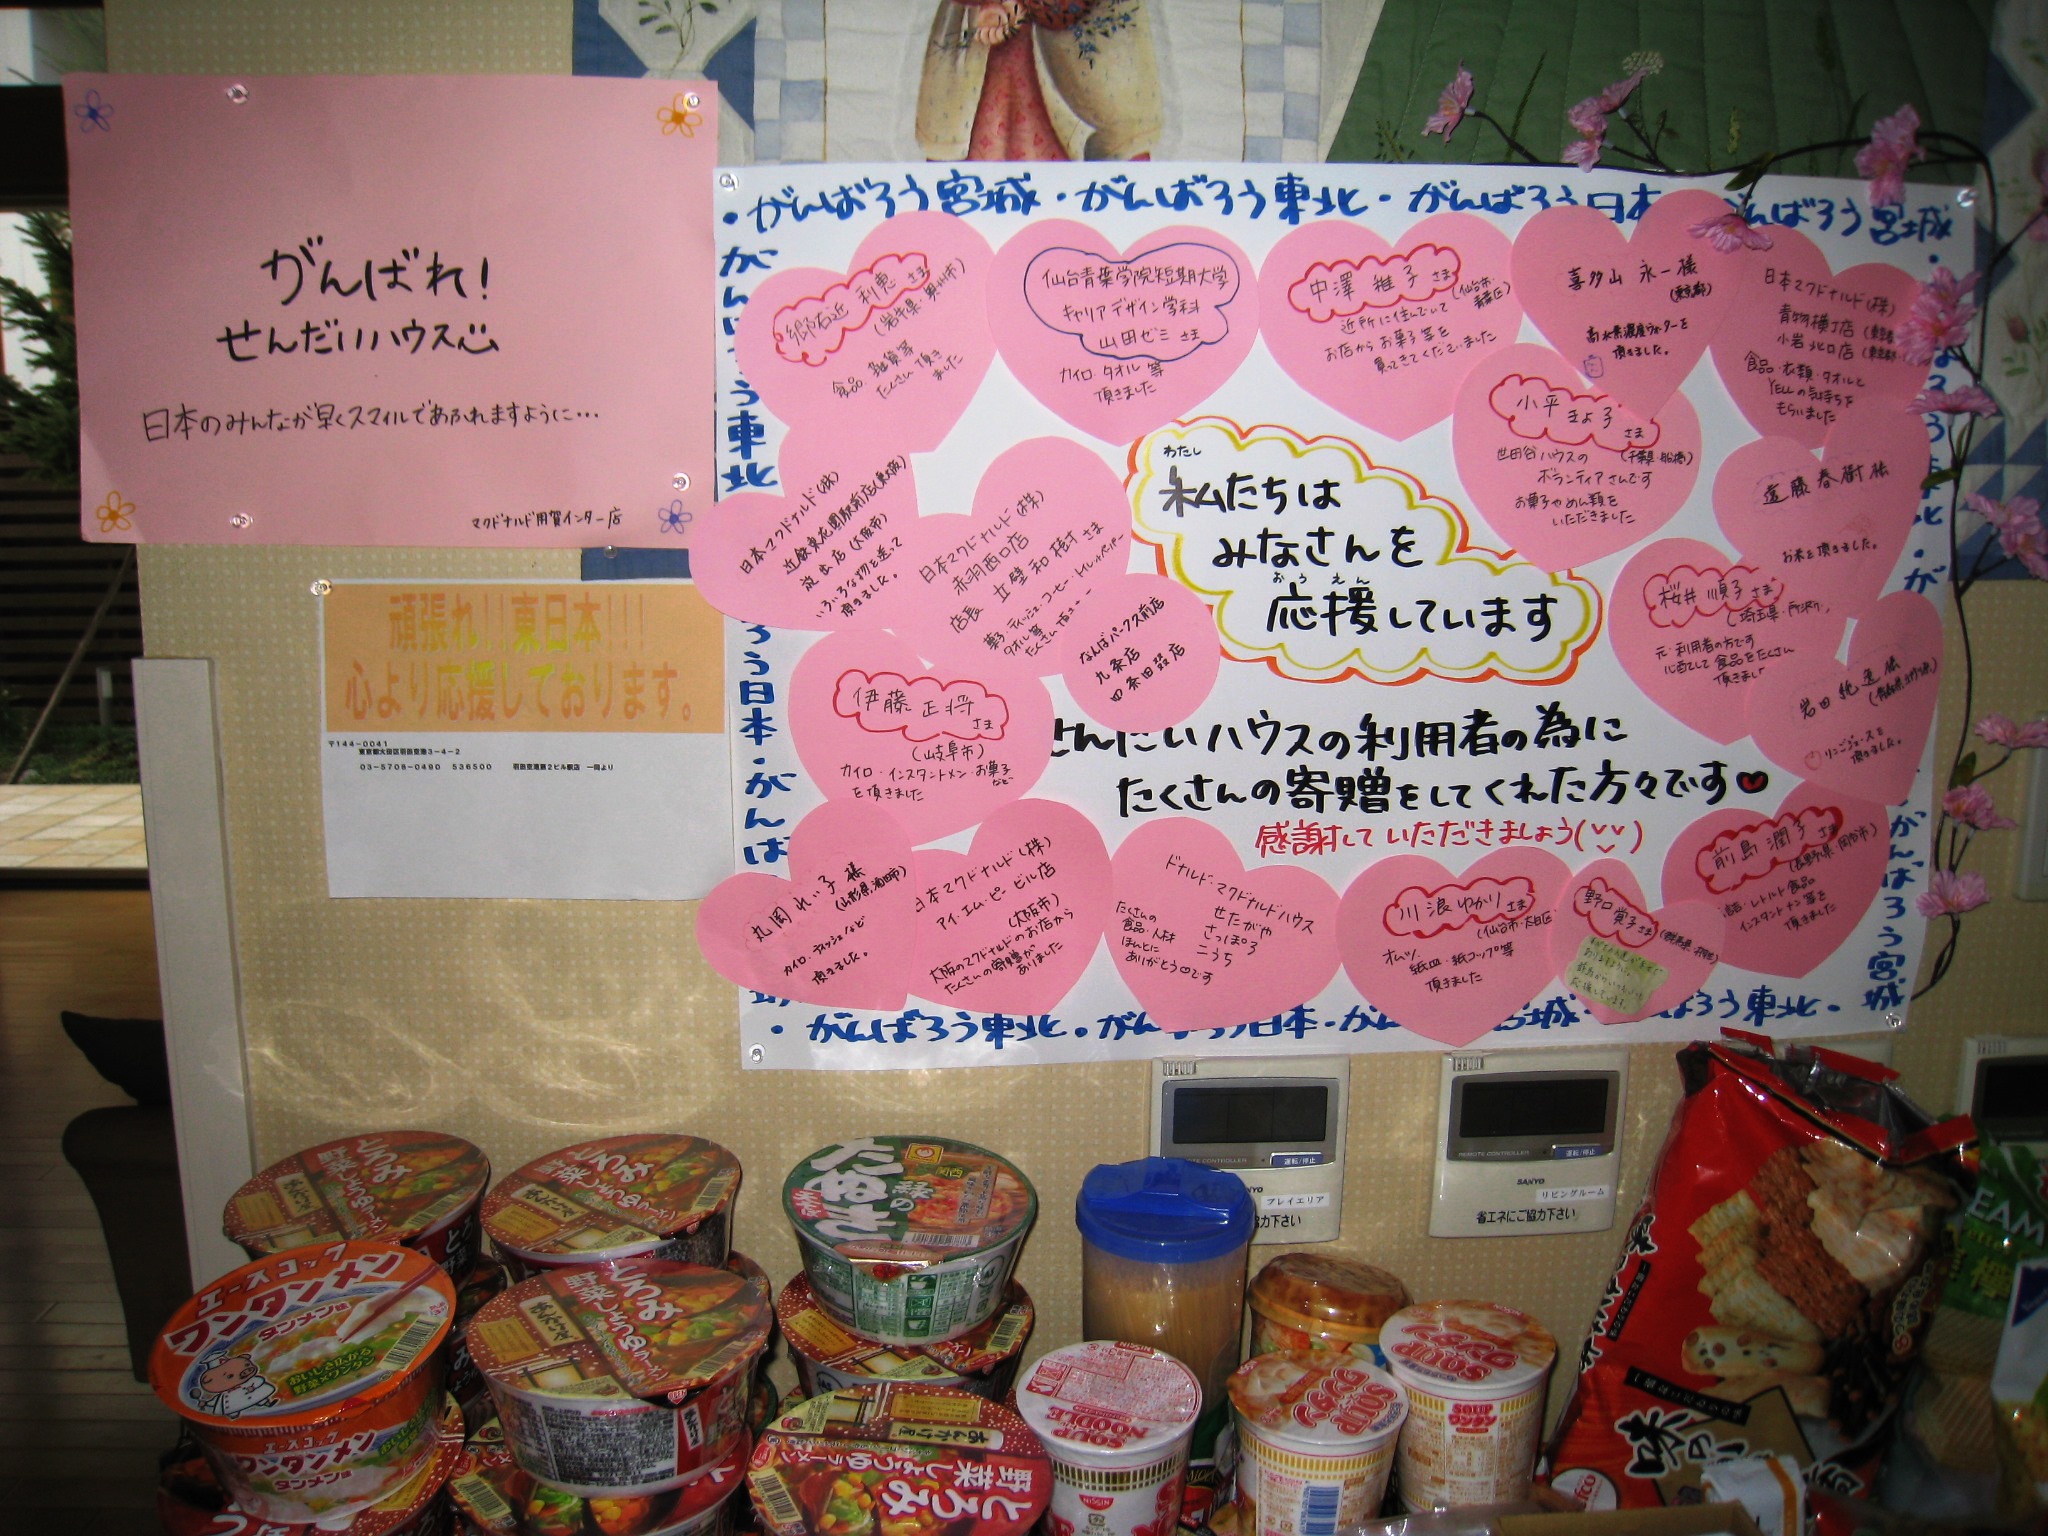 がんばれ!
せんだいハウス
日本のみんなが早くスマイルであふれますように・・・
マクドナルド用賀インター店
頑張れ!!東日本!!!
心より応援しております。
〒144-0041
東京都大田区羽田空港3-4-2
03-5708-0490 536500 羽田空港第2ビル駅店 一同より
・がんばろう宮城・がんばろう東北・がんばろう日本
んばろう宮城
郷右近 利恵さま
(岩手県・奥州市)
食品・雑貨等
たくさん頂き
ました
仙台青葉学院短期大学
キャリアデザイン学科
山田ゼミさま
カイロ・タオル等
頂きました
中澤 雅子さま
(仙台市・青葉区)
近所に住んでいて
お店からお菓子等を
買ってきてくださいました
喜多山 永一様
(東京都)
高水素濃度ウォーターを
頂きました。
日本マクドナルド(株)
青物横丁店
小岩北口店
食品・衣類・タオルと
YELLの気持ちを
もらいました
小平 きよ子さま
(千葉県・船橋)
世田谷ハウスの
ボランティアさんです
お菓子やめん類を
いただきました
遠藤春樹様
お米を頂きました。
日本マクドナルド(株)
近鉄東花園駅前店(東大阪)
淀 店(大阪市)
いろいろな物を送って
頂きました。
日本マクドナルド(株)
赤羽西口店
店長 立壁和樹さま
菓子・ティッシュ・コーヒー・トイレットペーパー
タオル等
たくさん頂き
なんばパークス前店
九条店
四条田翌店
わたし
私たちは
みなさんを
おうえん
応援しています
桜井 順子さま
(埼玉県・所沢)
元・利用者の方です
心配して食品をたくさん
頂きまし
岩田 純逸様
リンゴジュースを
頂きました。
伊藤 正将さま
(岐阜市)
カイロ・インスタントメン・お菓子など
を頂きました
せんだいハウスの利用者の為に
たくさんの寄贈をしてくれた方々です
感謝していただきましょう
丸岡れい子様
(山形県酒田市)
カイロ・ティッシュなど
頂きました。
日本マクドナルド(株)
アイ・エム・ピービル店
(大阪市)
大阪のマクドナルドのお店から
たくさんの寄贈が
ありました
ドナルド・マクドナルドハウス
せたがや
さっぽろ
こうち
たくさんの
食品・人材
ほんとに
ありがとうです
川浪ゆかりさま
(仙台市・太白区)
オムツ
紙皿・紙コップ等
頂きました
野口賞子さま
前島 潤子さま
(長野県・岡谷市)
レトルト食品
インスタントメン等を
頂きました
・がんばろう東北・がんばろう日本・がん
ばろう東北・
REMOTE CONTROLLER
運転/停止
プレイエリア
力下さい
REMOTE CONTROLLER
運転/停止
SANYO
リビングルーム
省エネにご協力下さい
とろみ
野菜しょうゆラーメン
とろみ
野菜しょうゆラーメン
緑のたぬき
エースコック
ワンタンメン
タンメン味
エースコック
ワンタンメン
タンメン味
とろみ
野菜しょうゆラーメン
とろみ
野菜しょうゆラーメン
NISSIN
SOUP
NOODLE
SOUP
ワンタン
SOUP
ワンタン